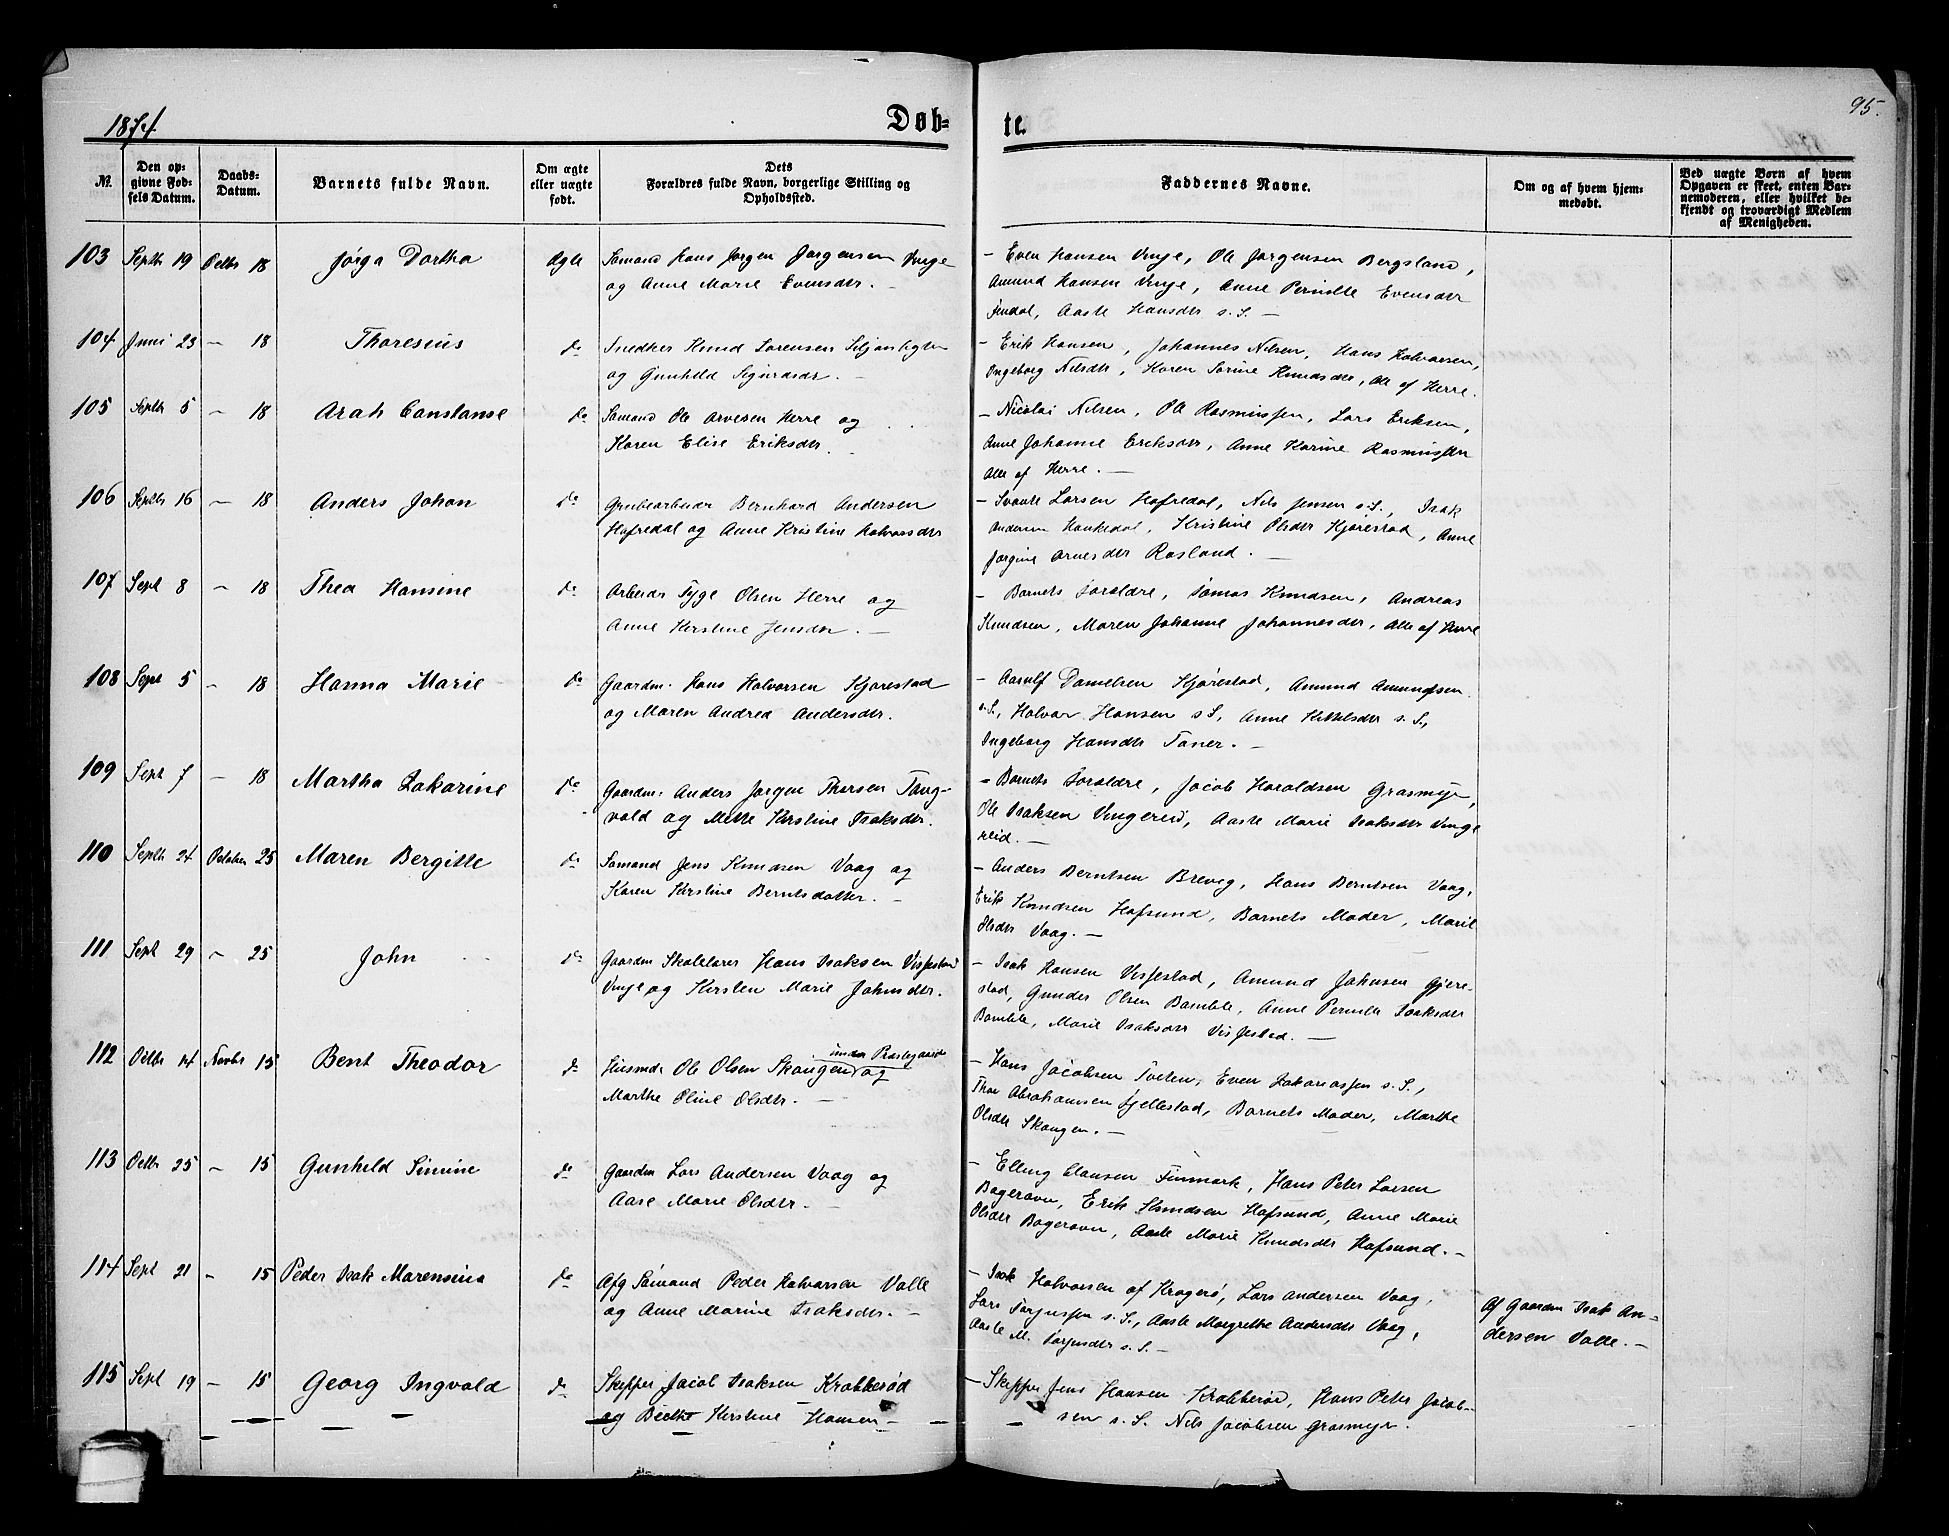 1874.
Døb=
te.
95.
№.
Den op=
givne Fød=
sels Datum.
Daabs=
Datum.
Barnets fulde Navn.
Om ægte
eller uægte
født.
Dets
Forældres fulde Navn, borgerlige Stilling og
Opholdssted.
Faddernes Navne.
Om og af hvem hjem=
medøbt.
Ved uægte Børn af hvem
Opgaven er skeet, enten Bar=
nemoderen, eller hvilket be=
kjendt og troværdigt Medlem
af Menigheden.
103 Septbr 19 Octbr 18 Jørga Dorthea Ægte Sømand Hans Jørgen Jørgensen Vinje
og Anne Marie Evensdtr. —
— Even Hansen Vinje, Ole Jørgensen Bergsland,
Amund Hansen Vinje, Anne Pernille Evensdtr
Findal, Aaste Hansdtr s. S. —
104 Juni 23 — 18 Thoresius do Snedker Knud Sørensen Siljan
og Gunhild Sigurdsdr. —
— Erik Hansen, Johannes Nilsen, Hans Halvorsen,
Ingeborg Nilsdtr, Karen Sørine Knudsdtr, Alle af Herre.
105 Septbr 5 — 18 Arah Constanse do Sømand Ole Arvesen Herre og
Karen Elise Eriksdtr.
— Nicolai Nilsen, Ole Rasmussen, Lars Eriksen,
Anne Johanne Eriksdtr, Anne Karine Rasmusdtr
Alle af Herre. —
106 Septbr 16 — 18 Anders Johan do Grubearbeider Bernhard Andersen
Hafredal og Anne Kristine Halvorsdtr
— Svante Larsen Hafredal, Nils Jensen s. S., Isak
Andersen Hankedal, Kristine Olsdtr Kjørestad, Anne
Jørgine Arnesdtr Rosland. —
107 Sept 8 — 18 Thea Hansine do Arbeider Tyge Olsen Herre og
Anne Kirstine Jensdtr. —
— Barnets Forældre, Tomas Knudsen, Andreas
Knudsen, Maren Johanne Johannesdtr, Alle af Herre
108 Sept 5 — 18 Hanna Marie do Gaardm. Hans Halvorsen Kjørestad
og Maren Andrea Andersdtr.
— Aanulf Danielsen Kjørestad, Amund Amundsen
s. S., Halvor Hansen s. S, Anne Kittelsdtr s. S.,
Ingeborg Hansdtr Toner. —
109 Sept 7 — 18 Martha Zakarine do Gaardm. Anders Jørgen Thorsen Tang=
vald og Mette Kirstine Isaksdtr.
— Barnets Forældre, Jacob Haraldsen Grasmyr,
Ole Isaksen Vingereid, Aaste Marie Isaksdtr Vinge
reid. —
110 Septbr 24 October 25 Maren Bergitte do Sømand Jens Knudsen Vaag og
Karen Kirstine Berntsdatter. —
— Anders Berntsen Brevig, Hans Berntsen Vaag,
Erik Knudsen Hafsund, Barnets Moder, Marie
Olsdtr Vaag. —
111 Sept 29 — 25 John do Gaardm Skolelærer Hans Isaksen Visjestad
Vinje og Kirsten Marie Johnsdtr.
— Isak Hansen Visjestad, Amund Johnsen Gjere-
stad, Gunder Olsen Bamble, Anne Pernille Isaksdtr
Bamble, Marie Isaksdtr Visjestad. —
112 Octbr 14 Novbr 15 Bent Theodor do Husmd. Ole Olsen Skougen under Præstegaard og
Marthe Oline Olsdtr. —
— Hans Jacobsen Tveten, Even Zakariassen s. S.,
Thor Abrahamsen Fjellestad, Barnets Moder, Marthe
Olsdtr Skougen. —
113 Octbr 25 — 15 Gunhild Simine do Gaardm Lars Andersen Vaag og
Aase Marie Olsdtr. —
— Elling Clausen Finmark, Hans Peter Larsen
Bogeravn, Erik Knudsen Hafsund, Anne Marie
Olsdtr Bogeravn, Aaste Marie Knudsdtr Hafsund. —
114 Sept 21 — 15 Peder Isak Marensius do Afg Sømand Peder Halvorsen Valle
og Anne Marine Isaksdtr. —
— Isak Halvorsen af Kragerø, Lars Andersen Vaag,
Lars Torjussen s. S., Aaste Margrethe Andersdtr Vaag,
Aaste M. Torjusdtr s. S. —
Af Gaardm Isak An=
dersen Valle. —
115 Sept 19 — 15 Georg Ingvald do Skipper Jacob Isaksen Krabberød
og Beethe Kirstine Hansen —
— Skipper Jens Hansen Krabberød, Hans Peter Jacob=
sen s. S. Nils Jacobsen Grasmyr.